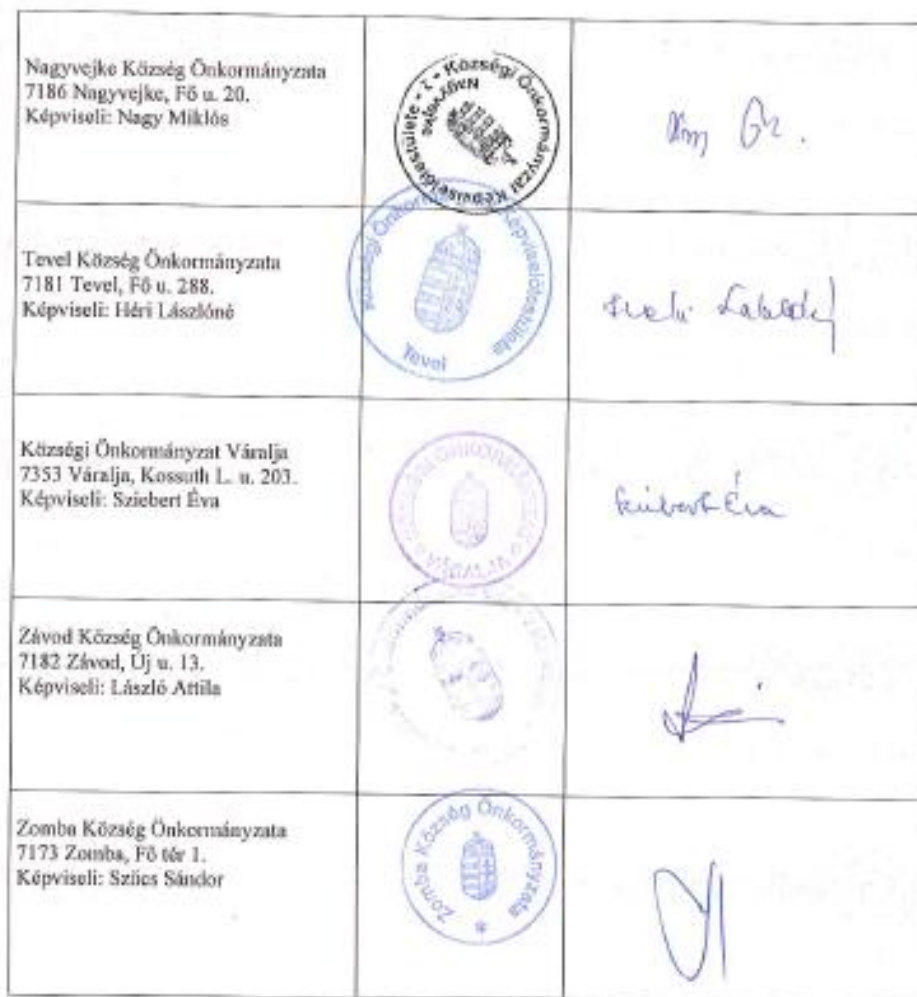 Nagyvejke Község Önkormányzata
7186 Nagyvejke, Fő u. 20.
Képviseli: Nagy Miklós
Községi Önkormányzat Képviselőtestülete • 1 •
NAGYVEJKE
Tevel Község Önkormányzata
7181 Tevel, Fő u. 288.
Képviseli: Héri Lászlóné
Községi Önkormányzat Képviselőtestülete
Tevel
Községi Önkormányzat Váralja
7353 Váralja, Kossuth L. u. 203.
Képviseli: Sziebert Éva
KÖZSÉGI ÖNKORMÁNYZAT VÁRALJA
Sziebert Éva
Závod Község Önkormányzata
7182 Závod, Új u. 13.
Képviseli: László Attila
Zomba Község Önkormányzata
7173 Zomba, Fő tér 1.
Képviseli: Szűcs Sándor
Zomba Község Önkormányzata